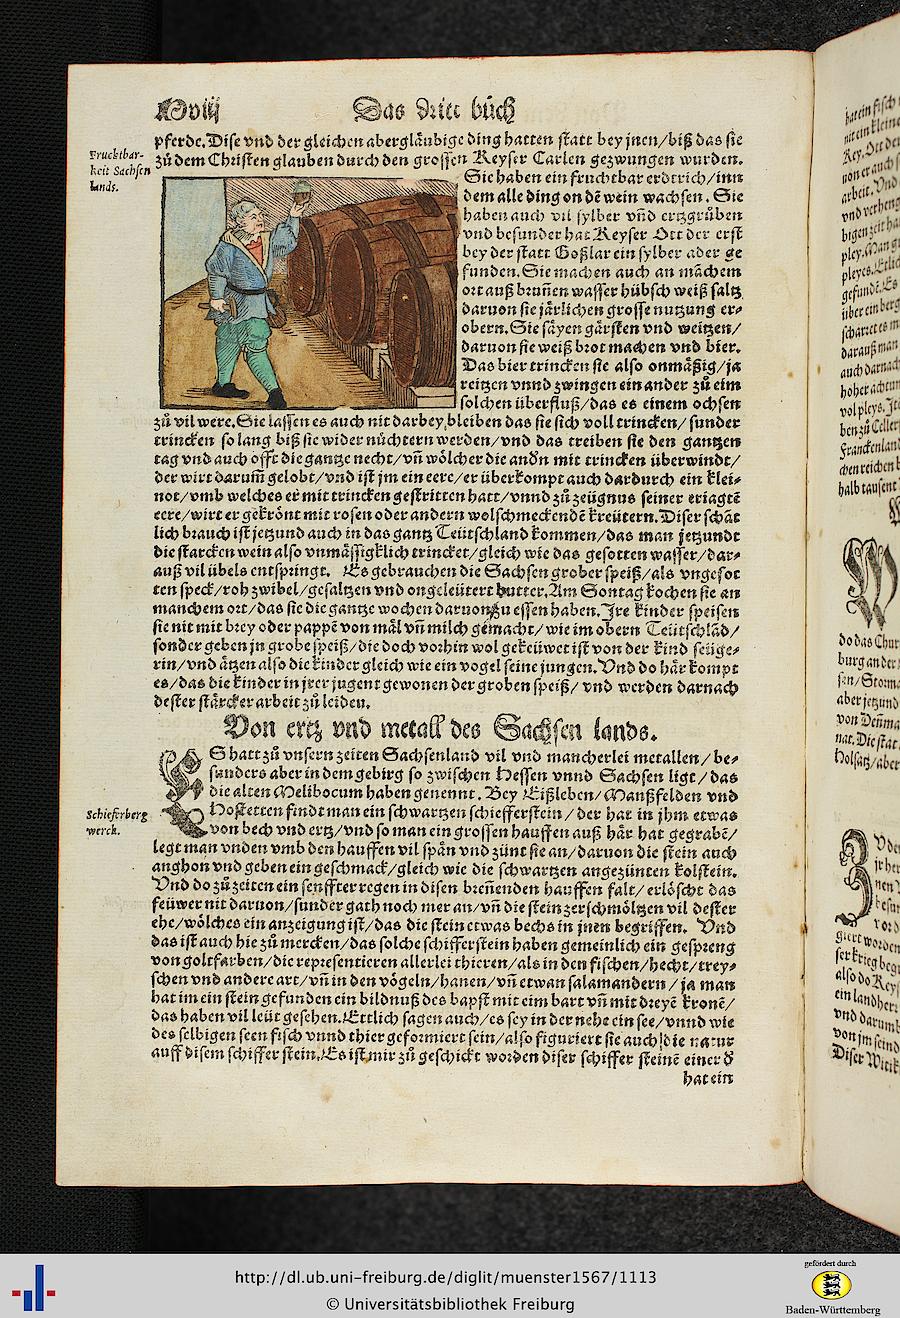 Das dritt bůch
pferde. Dise vnd der gleichen abergläubige ding hatten statt bey jnen/biß das sie
Fruchtbar-
keit Sachsen
lands.
zů dem Christen glauben durch den grossen Keyser Carlen gezwungen wurden.
Sie haben ein fruchtbar erdtrich/inn
dem alle ding on dē wein wachsen. Sie
haben auch vil sylber vñd ertzgrůben
vnd besunder hat Keyser Ott der erst
bey der statt Goßlar ein sylber ader ge
funden. Sie machen auch an māchem
ort auß bruñen wasser hübsch weiß saltz
daruon sie järlichen grosse nutzung er-
obern. Sie säyen gärsten vnd weitzen/
daruon sie weiß brot machen vnd bier.
Das bier trincken sie also onmäßig/ja
reitzen vnnd zwingen ein ander zů eim
solchen überfluß/das es einem ochsen
zů vil were. Sie lassen es auch nit darbey bleiben das sie sich voll trincken/sunder
trincken so lang biß sie wider nüchtern werden/vnd das treiben sie den gantzen
tag vnd auch offt die gantze necht/vñ wölcher die andn mit trincken überwindt/
der wirt darum̃ gelobt/vnd ist jm ein eere/er überkompt auch dardurch ein klei-
not/vmb welches er mit trincken gestritten hatt/vnnd zů zeügnus seiner eriagtē
eere/wirt er gekrönt mit rosen oder andern wolschmeckendē kreütern. Diser schāt
lich brauch ist jetzund auch in das gantz Teütschland kommen/das man jetzundt
die starcken wein also vnmässigklich trincket/gleich wie das gesotten wasser/dar-
auß vil übels entspringt. Es gebrauchen die Sachsen grober speiß/als vngesot
ten speck/roh zwibel/gesaltzen vnd ongeleütert butter. Am Sontag kochen sie an
manchem ort/das sie die gantze wochen daruon zu essen haben. Jre kinder speisen
sie nit mit brey oder pappē von mäl vñ milch gemacht/wie im obern Teütschlād/
sonder geben jn grobe speiß/die doch vorhin wol gekeüwet ist von der kind seüge-
rin/vnd ätzen also die kinder gleich wie ein vogel seine jungen. Vnd do här kompt
es/das die kinder in jrer jugent gewonen der groben speiß/vnd werden darnach
dester stärcker arbeit zů leiden.
Von ertz vnd metall des Sachsen lands.
ES hatt zů vnsern zeiten Sachsenland vil vnd mancherlei metallen/be-
sunders aber in dem gebirg so zwischen Hessen vnnd Sachsen ligt/das
die alten Melibocum haben genennt. Bey Eißleben/Manßfelden vnd
Schieferberg
werck.
Hostetten findt man ein schwartzen schiefferstein/der har in jhm etwas
von bech vnd ertz/vnd so man ein grossen hauffen auß här hat gegrabē/
legt man vnden vmb den hauffen vil spän vnd zünt sie an/daruon die stein auch
anghon vnd geben ein geschmack/gleich wie die schwartzen angezünten kolstein.
Vnd do zů zeiten ein senffter regen in disen breñenden hauffen falt/erlöscht das
feüwer nit daruon/sunder gath noch mer an/vñ die stein zerschmöltzen vil dester
ehe/wölches ein anzeigung ist/das die stein etwas bechs in jnen begriffen. Vnd
das ist auch hie zů mercken/das solche schifferstein haben gemeinlich ein gespreng
von goltfarben/die representieren allerlei thieren/als in den fischen/hecht/trey-
schen vnd andere art/vñ in den vögeln/hanen/vñ etwan salamandern/ja man
hat im ein stein gefunden ein bildnuß des bapst mit eim bart vñ mit dreyē kronē/
das haben vil leüt gesehen. Ettlich sagen auch/es sey in der nehe ein see/vnnd wie
des selbigen seen fisch vnnd thier geformiert sein/also figuriert sie auch die natur
auff disem schiffer stein. Es ist mir zů geschickt worden diser schiffer steinē einer d
hat ein
http://dl.ub.uni-freiburg.de/diglit/muenster1567/1113
© Universitätsbibliothek Freiburg
gefördert durch
Baden-Württemberg